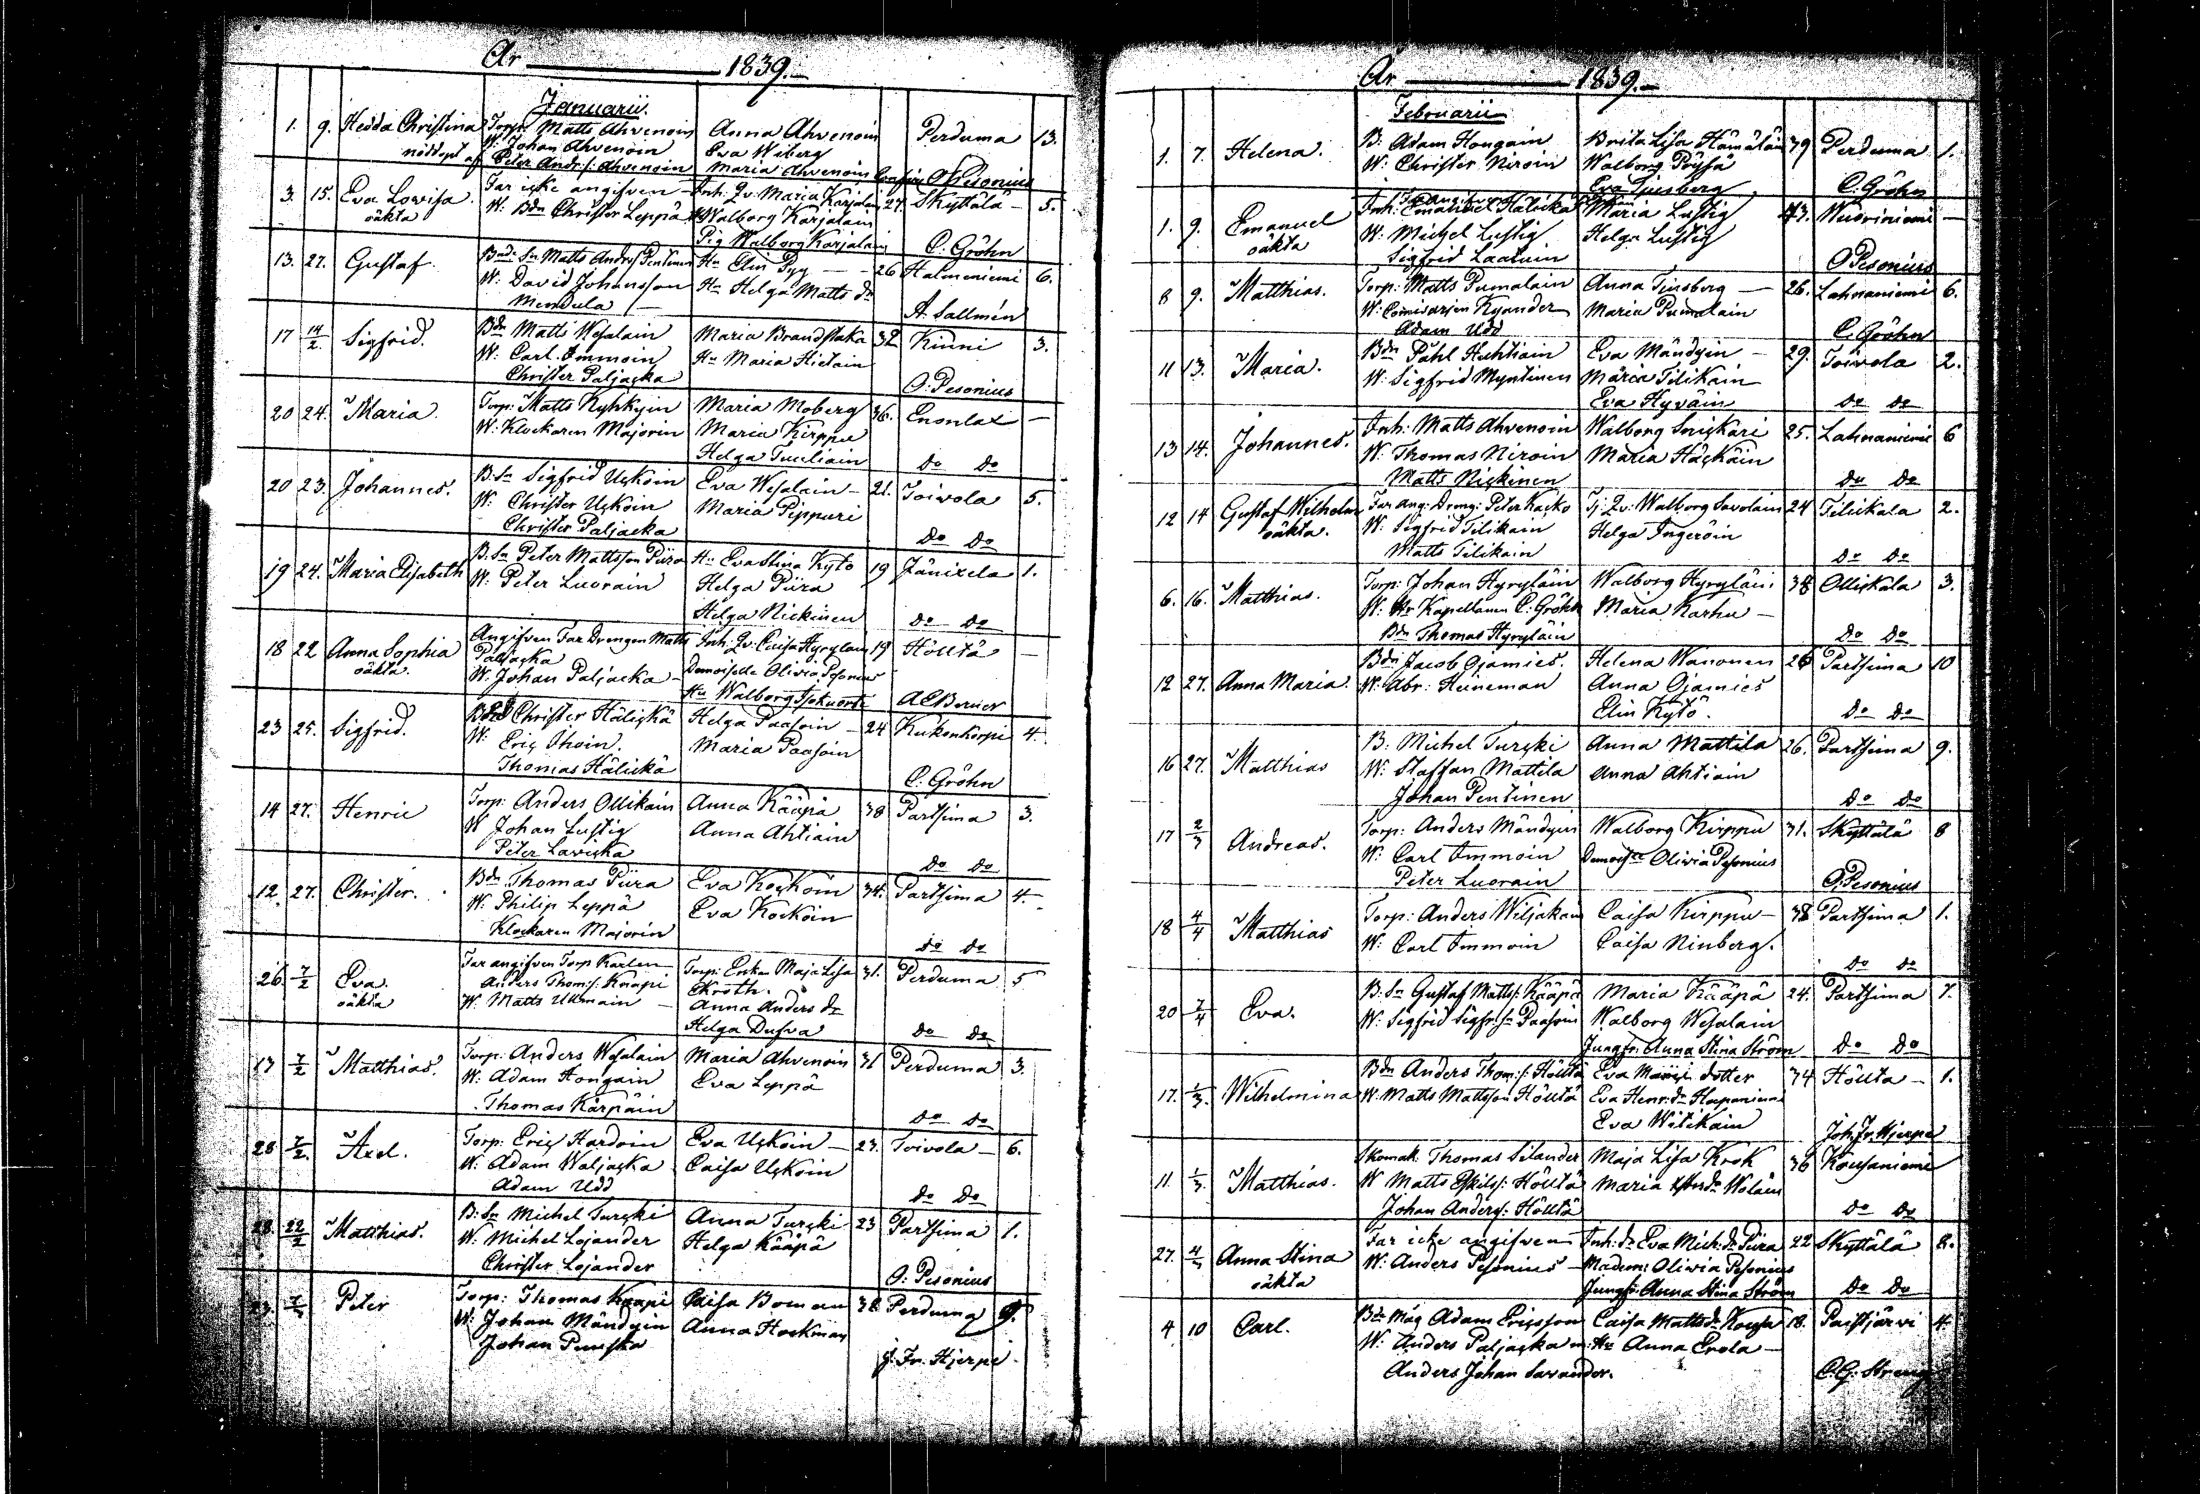 År 1839.
Januarii.
1. 9. Hedda Christina Torp: Matts Ahvenoin Anna Ahvenoin Perduma 13.
nöddöpt af W: Johan Ahvenoin Eva Wiberg
Peter Andr:s: Ahvenoin Maria Ahvenoin O Pesonius
3. 15. Eva Lovisa. Far icke angifven - Inh: Qv: Maria Karjalain 27. Skyttälä - 5.
oäkta W: Bdn Christer Leppä Walborg Karjalain
Pig Walborg Karjalain C. Gröhn
13. 27. Gustaf. Bnde Sn Matts Anders: Pentinen Hu Elin Pyy - 26 Halmeniemi 6.
W: David Johansson Hu Helga Matts dr
Mendula A. Sallmén
17 14/2 Sigfrid. Bdn Matts Wesalain Maria Brandstaka 32 Kinni 3.
W: Carl Immoin Hu Maria Hietain
Christer Paljacka O: Pesonius
20 24. Maria. Torp: Matts Nyhkyin Maria Moberg 36. Enonlax -
W: Klockaren Majorin Maria Kirppu
Helga Tuuliain do do
20 23. Johannes. B. Sn Sigfrid Uckoin Eva Wesalain - 21. Toivola 5.
W: Christer Uckoin Maria Pippuri
Christer Paljacka do do
19 24. Maria Elisabeth B. Sn Peter Mattsson Piira Hu Eva Stina Kytö 19 Jänixela 1.
W: Peter Luorain Helga Piira
Helga Nickinen do do
18 22 Anna Sophia Angifven Far Drengen Matts Inh: Qv: Caisa Hyrylain 19 Hölttä -
oäkta. Paljacka
W. Johan Paljacka - Demoiselle Olivia Pesonius
Hu Walborg A E Berner
23 25. Sigfrid. Bdn Christer Hälickä Helga Paasoin - 24 Kukonkorpi 4.
W: Eric Ihoin. Maria Paasoin
Thomas Hälickä C. Gröhn
14 27. Henric Torp: Anders Ollikain Anna Kääpä 38 Partsima 3.
W Johan Lustig Anna Ahtiain
Peter Lavicka do do
12. 27. Christer. Bdn Thomas Piira Eva Kockoin 34. Partsima 4.
W. Philip Leppä Eva Kockoin
Klockaren Majorin do do
26. 7/2 Eva. Far angifven Torp Karlen Torp: Enkan Maja Lisa 31. Perduma 5
oäkta Anders Thom:s: Knaapi Kroth.
W. Matts Ukkonain - Anna Anders dr
Helga Dufva do do
17 7/2 Matthias. Torp: Anders Wesalain Maria Ahvenoin 31 Perduma 3.
W: Adam Hongain Eva Leppä
Thomas Kärpäin do do
28 7/2. Axel. Torp: Eric Hardoin Eva Uckoin - 27. Toivola - 6.
W: Adam Waljacka Caisa Uckoin
Adam Udd do do
28. 22/2 Matthias. B: Sn Michel Turcki Anna Turcki 23 Partsima 1.
W. Michel Lojander Helga Kääpä
Christer Lojander O: Pesonius
23. Peter Torp: Thomas Knaapi Caisa Boman 38 Perduma 9.
W: Johan Mändyin Anna Hockman
Johan Puuska J. Fr. Hjerpe.
År 1839.
Februarii
1. 7. Helena. B: Adam Hongain Brita Lisa Hämäläin 39 Perduma 1.
W: Christer Niroin Walborg Pöyhä
Eva Tinsberg C. Gröhn
1. 9. Emanuel Inh: Emanuel Hälicka Maria Lustig 43. Wuoriniemi -
oäkta W: Michel Lustig Helga Lustig
Sigfrid Laatuin O Pesonius
8 9. Matthias. Torp: Matts Pumalain Anna Tinsberg - 26. Lahnaniemi 6.
W: Comisarien Kyander Maria Pumalain
Adam Udd C. Gröhn
11 13. Maria. Bdn Påhl Huhtiain Eva Mändyin - 29. Toivola 2.
W: Sigfrid Myntinen Maria Tilikain
Eva Hyväin do do
13 14. Johannes. Inh: Matts Ahvenoin Walborg Snickari 25. Lahnaniemi 6
W. Thomas Niroin Maria Häckäin
Matts Nickinen do do
12 14 Gustaf Wilhelm Far ang: Dreng: Peter Kacko Tj: Qv: Walborg Savolain 24 Tilickala 2.
oäkta. W: Sigfrid Tilikain Helga Ingeröin
Matts Tilikain do do
6. 16. Matthias. Torp: Johan Hyryläin Walborg Hyryläin 38 Ollickala 3.
W: Hr Kapellanen C: Gröhn Maria Karhu -
Bdn Thomas Hyryläin do do
12 27. Anna Maria. Bdn Jacob Ojamies. Helena Wanonen 26 Partsima 10
W. Abr: Heineman Anna Ojamies
Elin Kytö. do do
16 27. Matthias B: Michel Turcki Anna Mattila 26. Partsima 9.
W: Staffan Mattila Anna Ahtiain
Johan Pentinen do do
17 2/3 Andreas. Torp: Anders Mändyin Walborg Kirppu 31. Skyttälä 8
W: Carl Immoin Demoislle Olivia Pesonius
Peter Luorain O. Pesonius
18 4/4 Matthias Torp: Anders Wiljakain Caisa Kirppu - 38 Partsima 1.
W: Carl Immoin Caisa Ninberg.
do do
20 7/4 Eva. B: Sn Gustaf Matts: Kääpä Maria Kääpä 24. Partsima 7.
W: Sigfrid Sigfr:sn Paasoin Walborg Wesalain
Jungfr: Anna Stina Ström do do
17. 1/3. Wilhelmina Bdn Anders Thom:s: Hölttä Eva dotter 34 Hölttä - 1.
W: Matts Mattsson Hölttä Eva Henr: dr Haapaniemi
Eva Witikain Joh. Fr. Hjerpe
11. 1/3. Matthias. Skomak: Thomas Silander Maja Lisa Krok 36 Kousaniemi
W Matts Eskils: Hölttä Maria
Johan Anders: Hölttä do do
27. 4/3 Anna Stina Far icke angifven Inh: dr Eva Mich: dr Piira 22 Skyttälä 2.
oäkta W: Anders Pesonius - Madem: Olivia Pesonius
Jungfr: Anna Stina Ström do do
4 10 Carl. Bde Måg Adam Ericsson Caisa Matts dr 18. Paistjärvi 4.
W: Anders Paljacka m: Hu Anna Erola -
Anders Johan Savander. C. G. Streng